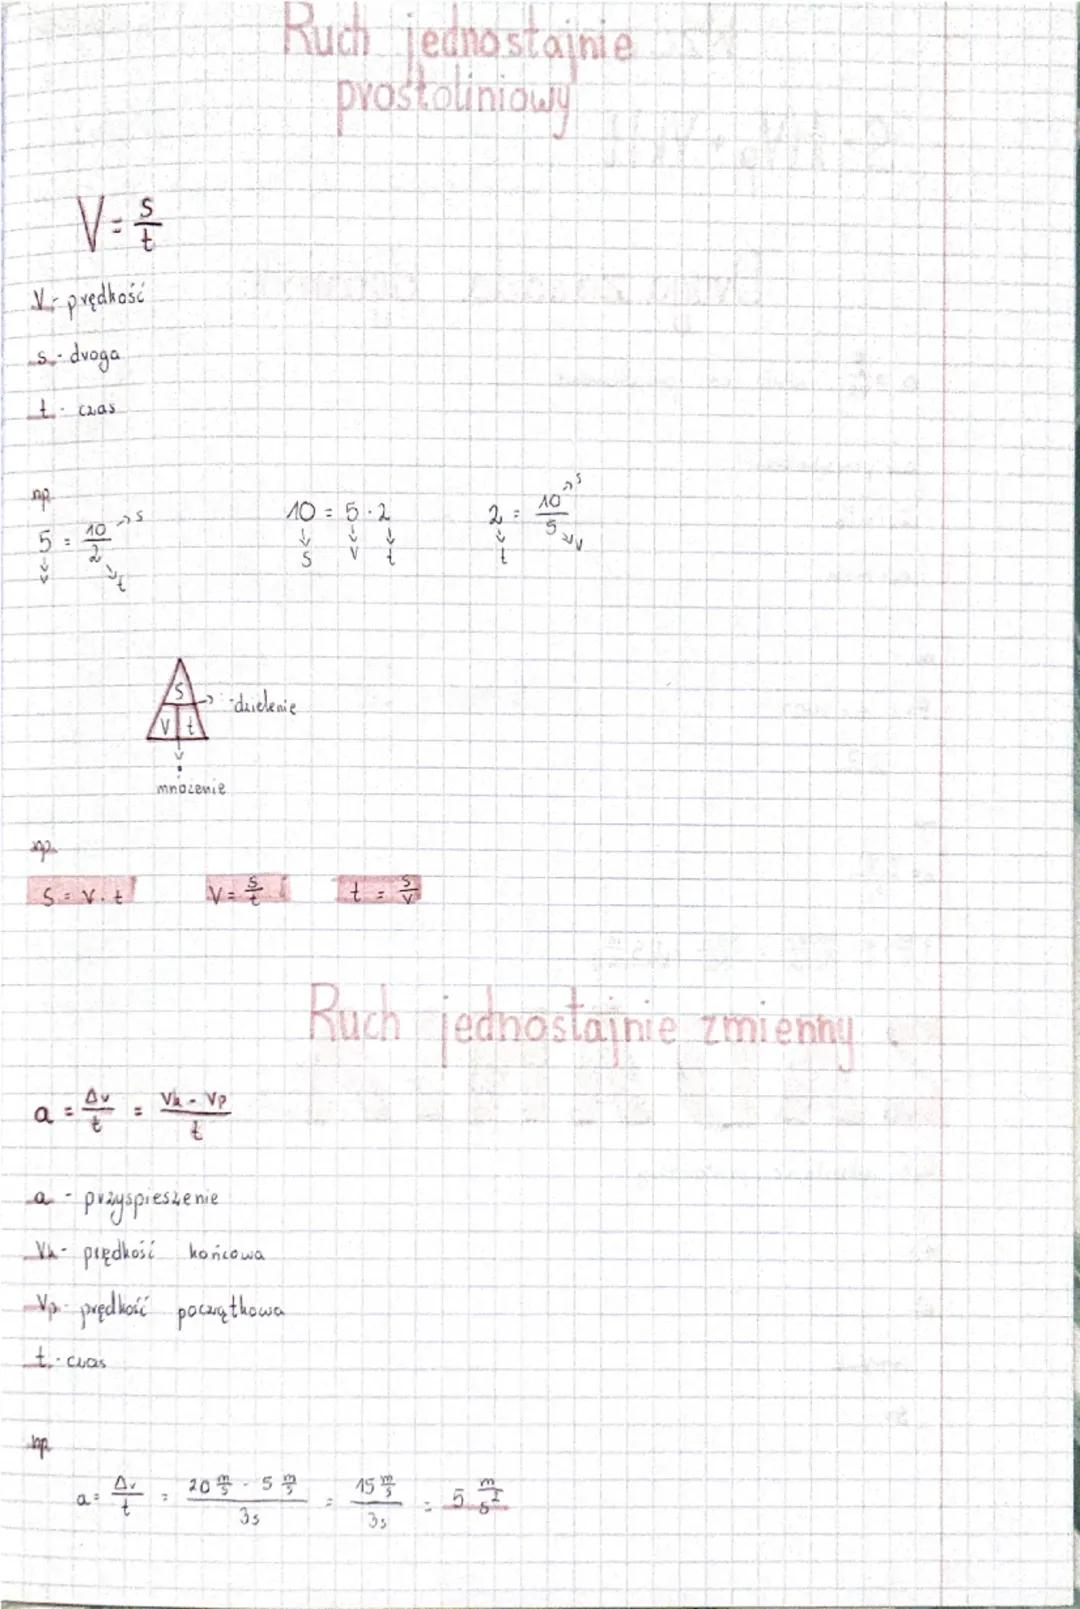 Ruch jednostajnie
prostoliniowy
V = s/t
V - prędkość
s - droga
t - czas
np.
5 = 10/2 → s
↓ v ↘ t
10 = 5 · 2
↓ ↓ ↓
s v t
2 = 10/5 → s
↓ t ↘ v
s → : dzielenie
v t
↓
·
mnożenie
np.
s = v · t v = s/t t = s/v
Ruch jednostajnie zmienny
a = Δv/t = Vk - Vp/t
a - przyspieszenie
Vk - prędkość końcowa
Vp - prędkość początkowa
t - czas
np.
a = Δv/t = 20 m/s - 5 m/s / 3s = 15 m/s / 3s = 5 m/s²